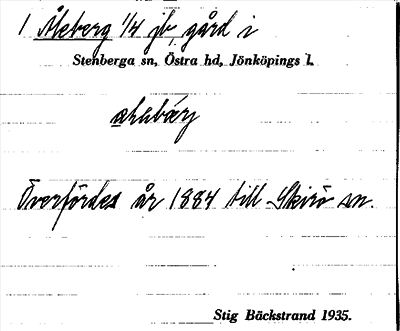 1 Åleberg 1/4 jb, gård i
Stenberga sn, Östra hd, Jönköpings l.
Överfördes år 1884 till Skirö sn.
Stig Bäckstrand 1935.